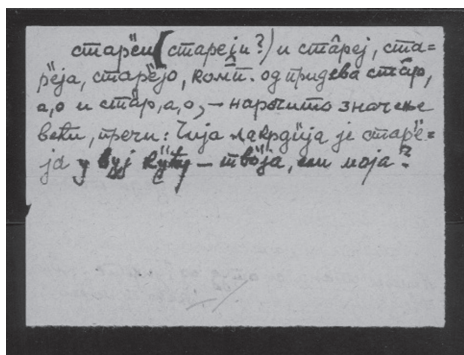 старѐи (стареји?) и стȃреј, ста=
рѐја, старѐјо, комп. од придева стȃр,
а, о и стȁр, а, о, — нарочито значење
већи, пречи: Чија лакрдѝја је старѐ=
ја у вуј кућу — твоја, или моја?